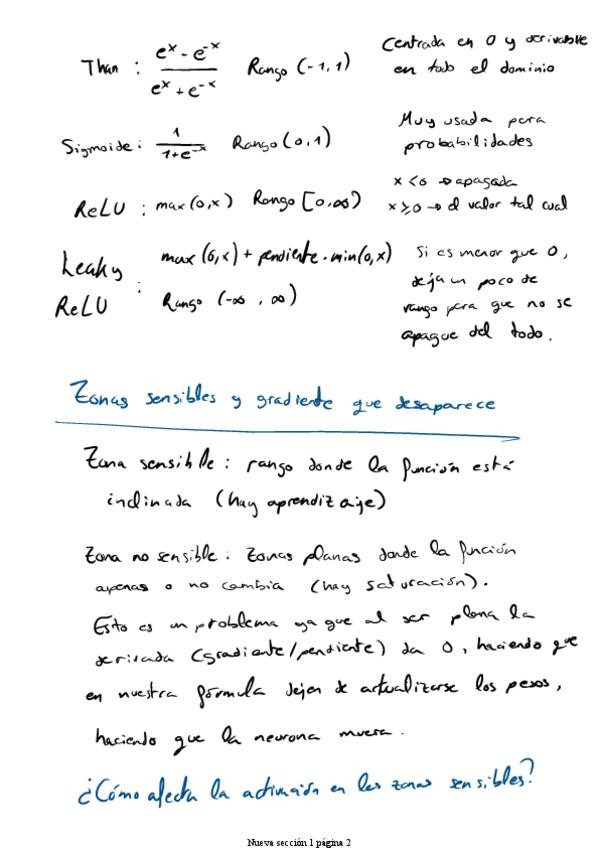 Than : e^x - e^-x / e^x + e^-x Rango (-1, 1) Centrada en 0 y derivable
en todo el dominio
Sigmoide : 1 / 1+e^-x Rango (0,1) Muy usada para
probabilidades
ReLU : max (0,x) Rango [0,∞) x<0 → apagada
x≥0 → el valor tal cual
Leaky
ReLU : max (0,x) + pendiente · min(0,x)
Rango (-∞, ∞)
Si es menor que 0,
deja un poco de
rango para que no se
apague del todo.
Zonas sensibles y gradiente que desaparece
Zona sensible : rango donde la función está
inclinada (hay aprendizaje)
Zona no sensible : Zonas planas donde la función
apenas o no cambia (hay saturación).
Esto es un problema ya que al ser plana la
derivada (gradiente/pendiente) da 0, haciendo que
en nuestra fórmula dejen de actualizarse los pesos,
haciendo que la neurona muera.
¿Cómo afecta la activación en las zonas sensibles?
Nueva sección 1 página 2